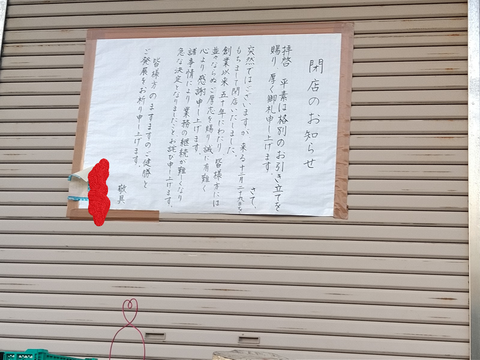 閉店のお知らせ
拝啓 平素は格別のお引き立てを
賜り 厚く御礼申し上げます。
さて、
突然ではございますが 来る十二月二十九日を
もちまして閉店いたしました。
創業以来五十年にわたり 皆様方には
並々ならぬご厚志を賜り 誠に有難く
心より感謝申し上げます。
諸事情により業務の継続が難しくなり
急な決定となりましたことお詫び申し上げます。
皆様方のますますのご健勝と
ご発展をお祈り申し上げます。
敬具